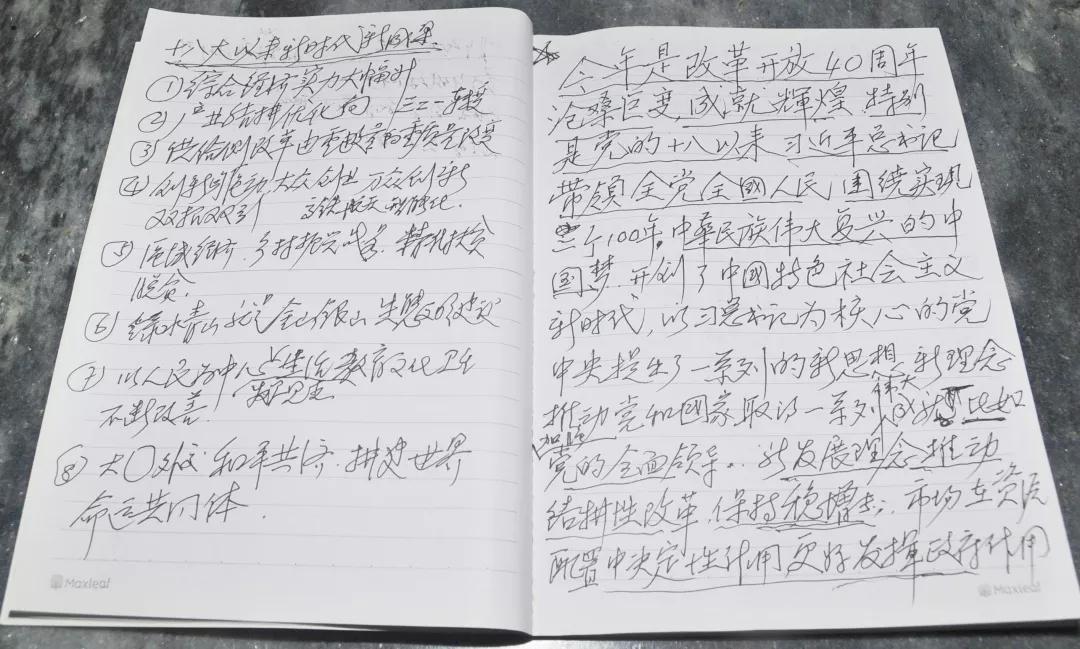 十八大以来新时代新
① 综合经济实力大幅
② 产业结构优化 三二一
③ 供给侧改革由重数量向重质量
④ 创新 大众创业 万众创新
双 双引 高铁航天
⑤ 区域经济 乡村振兴 精准扶贫
脱贫.
⑥ 绿水青山就是金山银山 生态文明建设
⑦ 以人民为中心 生活教育文化卫生
不断改善
⑧ 大〇外交 和平共济 世界
命运共同体.
Maxleaf
今年是改革开放40周年
沧桑巨变,成就輝煌.特别
是党的十八以来 习近平总书记
带領全党全國人民,围绕实现
二个100年,中華民族伟大复兴的中
国梦.开创了中國特色社会主义
新时代,以习总书记为核心的党
中央提出了一系列的新思想 新理念
伟大
推动党和國家取得一系列成就 比如
加强
党的全面领导.. 发展理念推动
结構性改革,保持稳增长; 市场在资源
配置中决定性作用更好发揮政府作用
Maxleaf